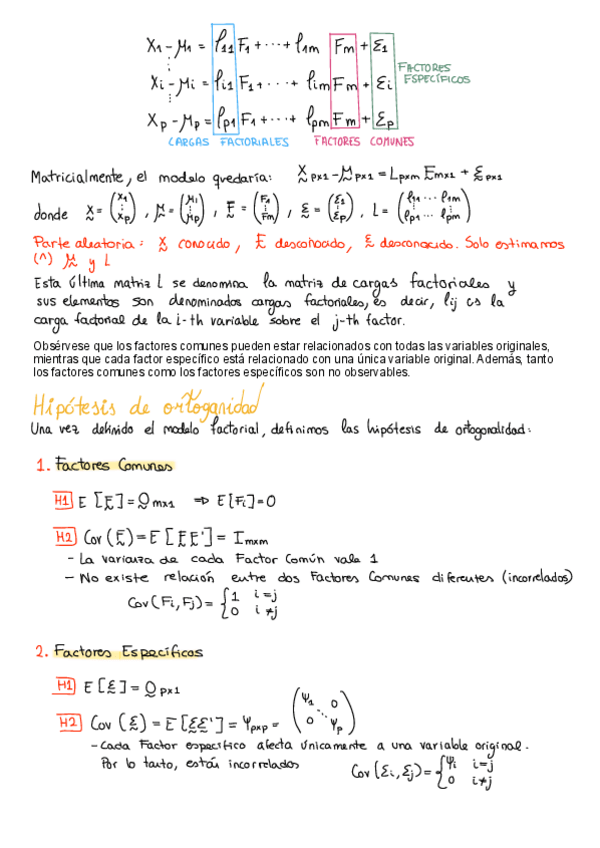 X1 - μ1 = l11 F1 + ··· + l1m Fm + ε1
⋮
Xi - μi = li1 F1 + ··· + lim Fm + εi
⋮
Xp - μp = lp1 F1 + ··· + lpm Fm + εp
FACTORES ESPECÍFICOS
CARGAS FACTORIALES FACTORES COMUNES
Matricialmente, el modelo quedaría: X px1 - μ px1 = L pxm F mx1 + ε px1
donde X = (X1 ⋮ Xp), μ = (μ1 ⋮ μp), F = (F1 ⋮ Fm), ε = (ε1 ⋮ εp), L = (l11 ··· l1m lp1 ··· lpm)
Parte aleatoria: X conocido, F desconocido, ε desconocido. Solo estimamos
(^) μ y L
Esta última matriz L se denomina la matriz de cargas factoriales y
sus elementos son denominados cargas factoriales, es decir, lij es la
carga factorial de la i-th variable sobre el j-th factor.
Obsérvese que los factores comunes pueden estar relacionados con todas las variables originales,
mientras que cada factor específico está relacionado con una única variable original. Además, tanto
los factores comunes como los factores específicos son no observables.
Hipótesis de ortoganidad
Una vez definido el modelo factorial, definimos las hipótesis de ortogonalidad:
1. Factores Comunes
H1 E[F] = 0 mx1 ⇒ E[Fi] = 0
H2 Cov(F) = E[FF'] = I mxm
- La varianza de cada Factor Común vale 1
- No existe relación entre dos Factores Comunes diferentes (incorrelados)
Cov(Fi, Fj) = {1 i=j 0 i≠j
2. Factores Específicos
H1 E[ε] = 0 px1
H2 Cov(ε) = E[εε'] = Ψ pxp = (Ψ1 0 ⋱ 0 Ψp)
- Cada Factor específico afecta únicamente a una variable original.
Por lo tanto, están incorrelados Cov(εi, εj) = {Ψi i=j 0 i≠j